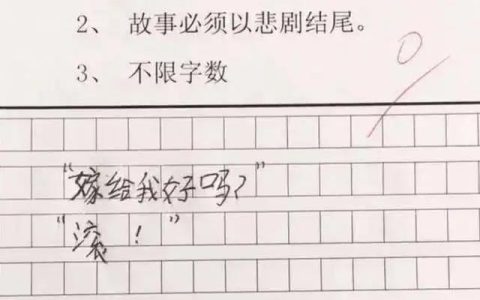 2、 故事必须以悲剧结尾。
3、 不限字数
0
"嫁给我好吗?"
"滚！"